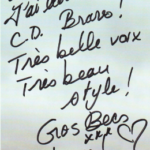 J'ai
C.D. Bravo!
Très belle voix
Très beau
style!
Gros Becs
xxx